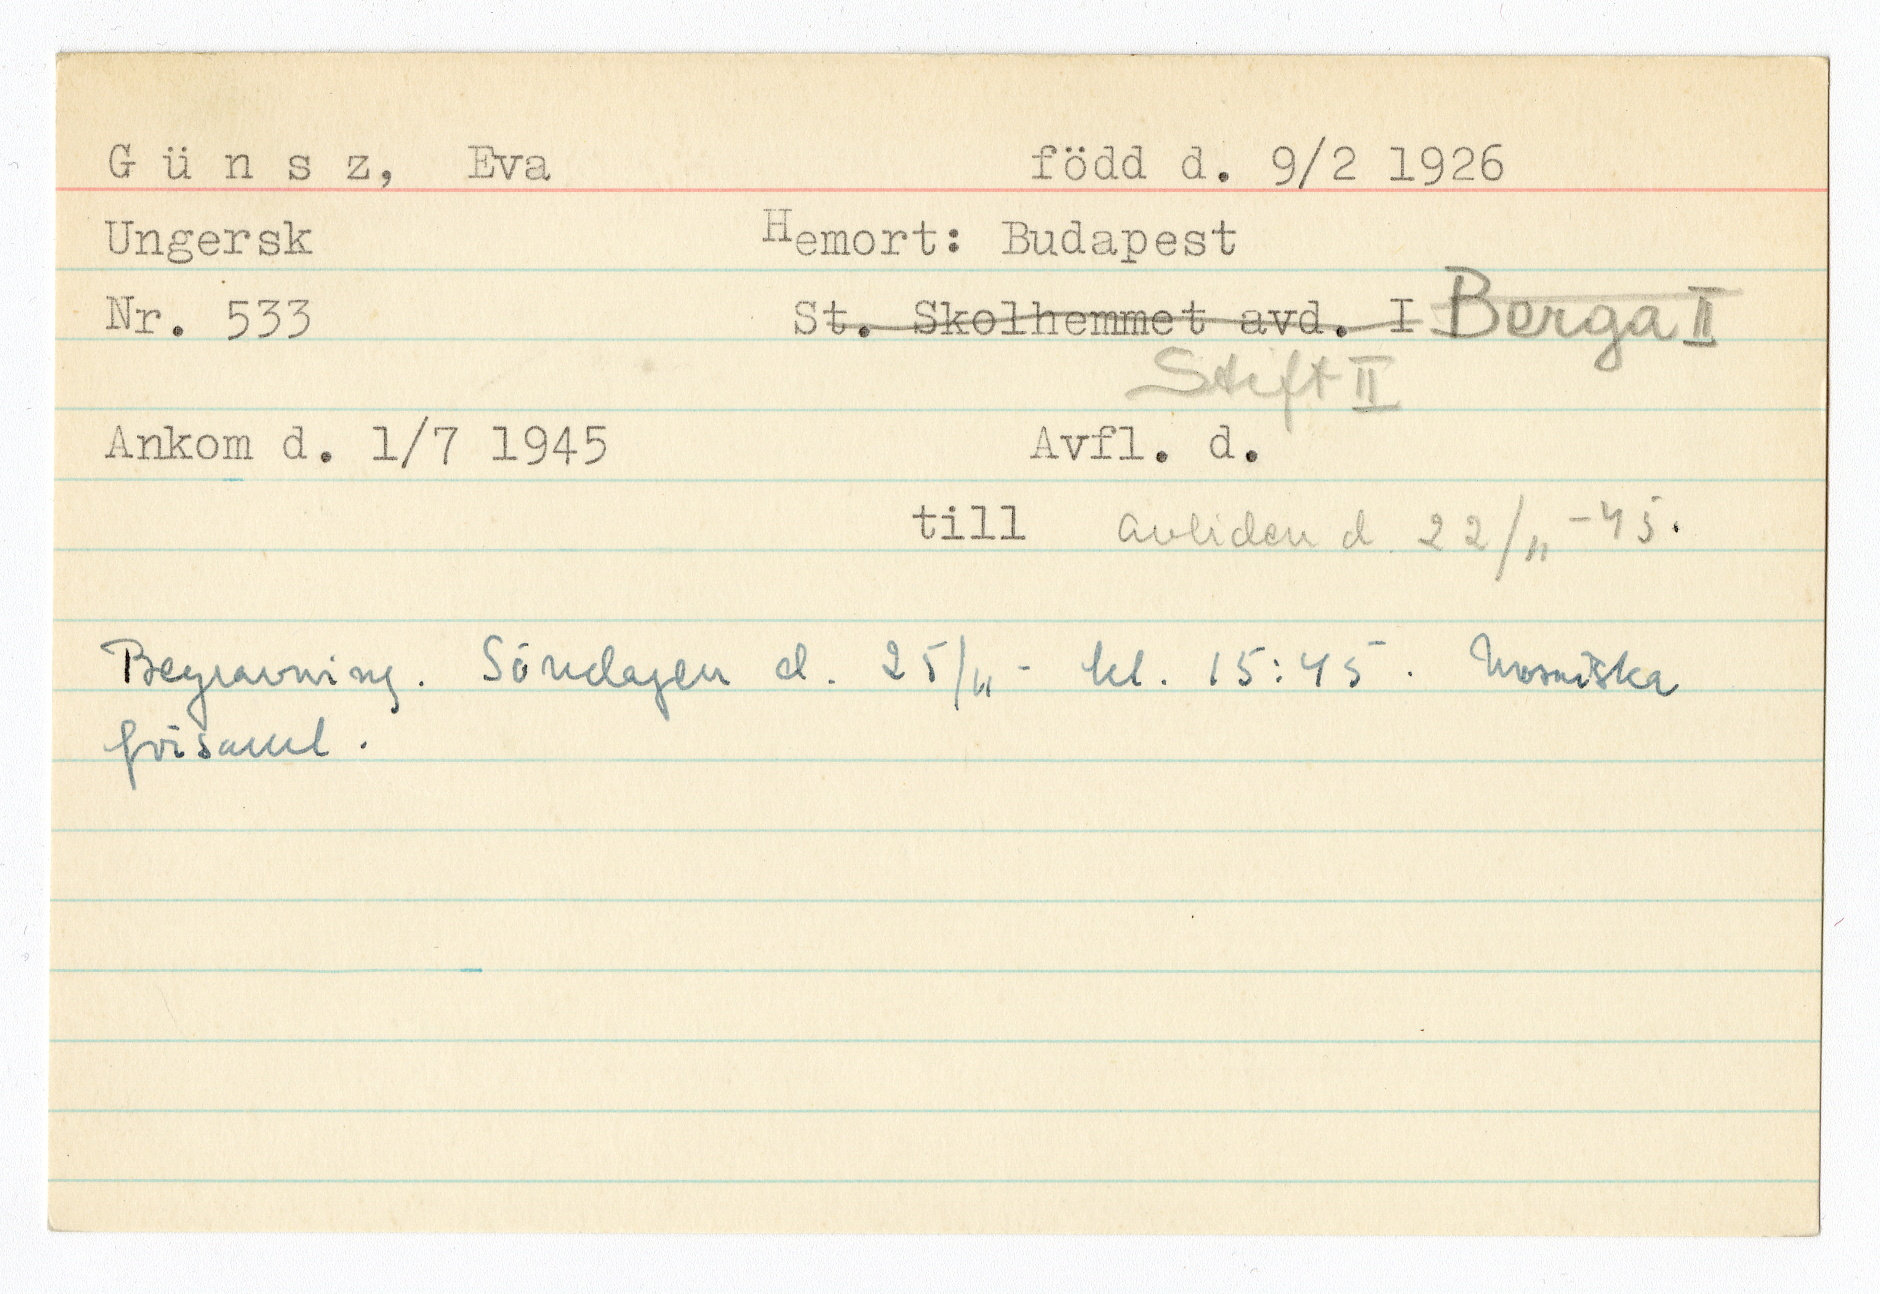 Günsz, Eva född d. 9/2 1926
Ungersk Hemort: Budapest
Nr. 533 St. Skolhemmet avd. I Berga II
Stift II
Ankom d. 1/7 1945 Avfl. d.
till avliden d 22/11 -45.
Begravning. Söndagen d. 25/11 - kl. 15:45. Mosaiska
församl.